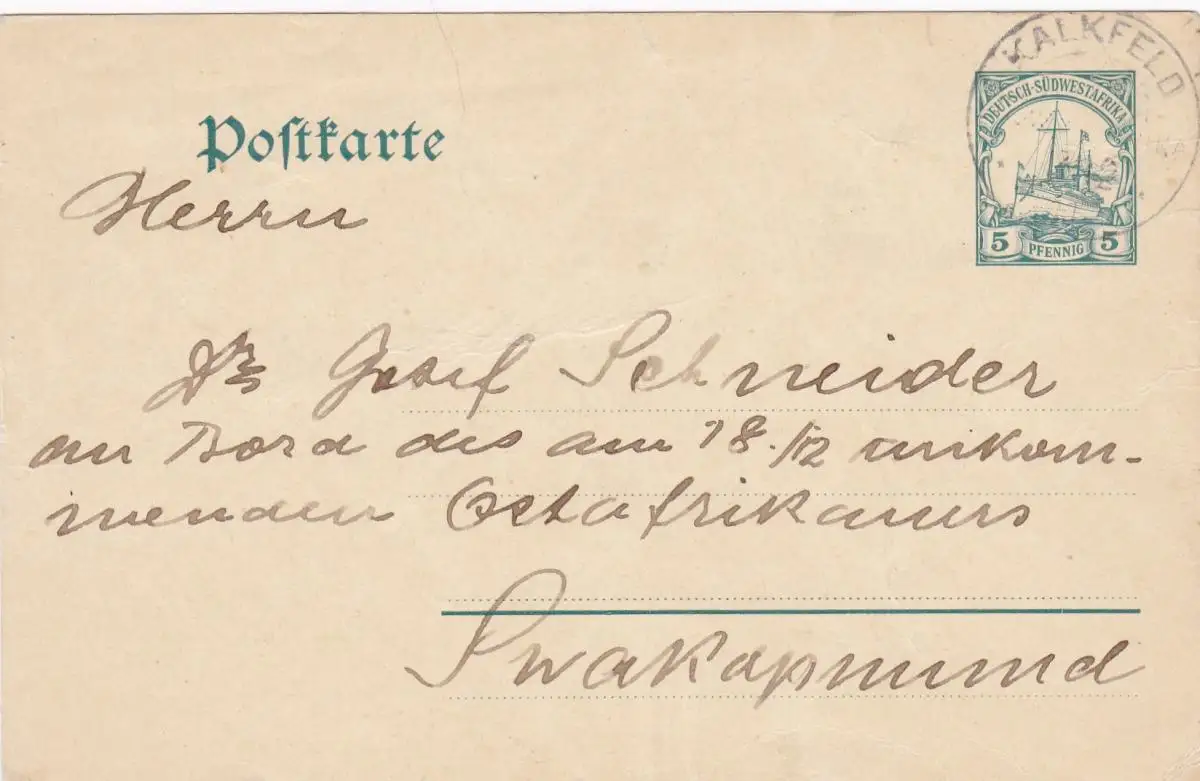 KALKFELD
DEUTSCH-SÜDWESTAFRIKA
Postkarte
Herrn
5 PFENNIG 5
Dr Josef Schneider
an Bord des am 18./12 ankom-
menden Ostafrikaners
Swakopmund